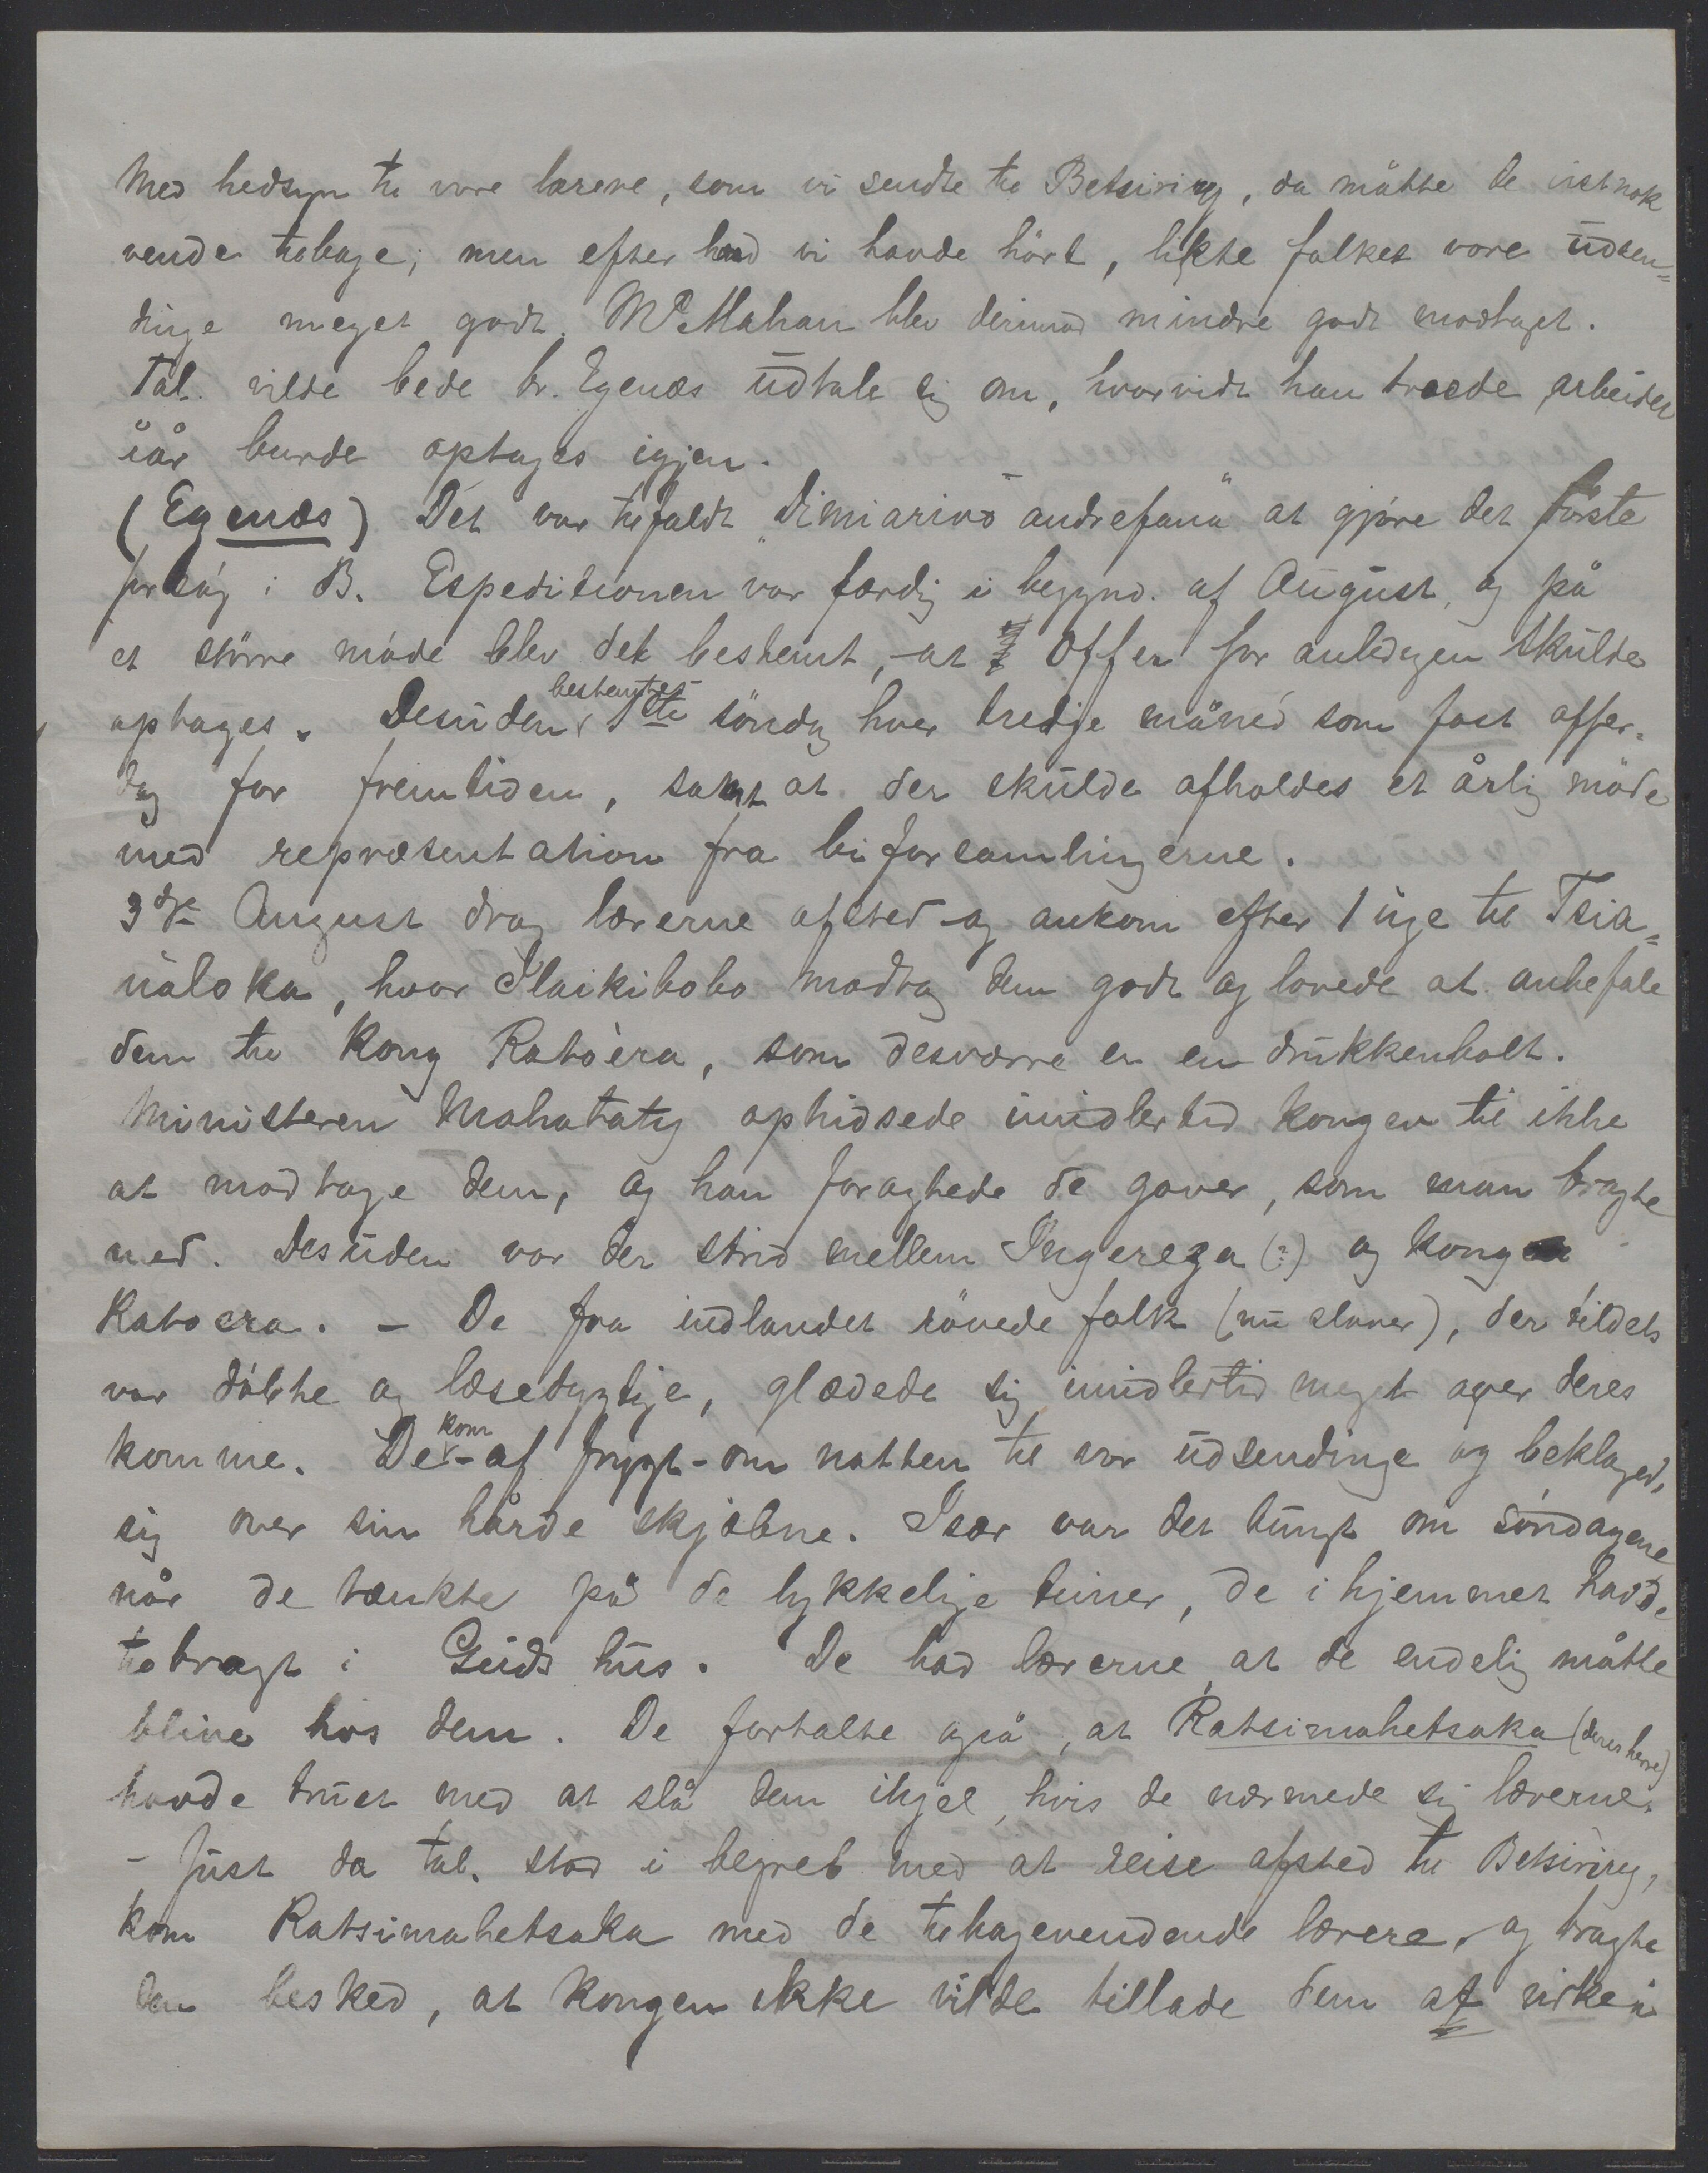 Med hedsyn til vore lærere, som vi sendte til Betsiriry, da måtte de vistnok
vende tilbage; men efter hvad vi havde hört, likte folket vore udsen=
dinge meget godt. McMahan blev derimod mindre godt modtaget.
Tal. vilde bede br. Egenæs udtale sig om, hvorvidt han troede arbeidet
iår burde optages igjen.
(Egenæs) Det var tilfaldt "Dimiarivo andrefana" at gjøre det første
forsøg i B. Espeditionen var færdig i begynd. af August, og på
et större möde blev det bestemt, at Offer for anledgen skulde
optages. Desuden bestemtes 1ste söndag hver tredje måned som fast offer-
dag for fremtiden, samt at der skulde afholdes et årlig möde
med repræsentation fra biforsamlingerne.
3die August drog lærerne afsted og ankom efter 1 uge til Tsia=
naloka, hvor Ilaikibobo modtog dem godt og lovede at anbefale
dem til Kong Ratoera, som desværre er en drukkenbolt.
Ministeren Mahataty ophidsede imidlertid kongen til ikke
at modtage dem, og han foragtede de gaver, som man bragte
med. Desuden var der strid mellem Ingereza (?) og kongen
Ratoera. – De fra indlandet rövede folk (nu slaver), der tildels
var döbte og læsedygtige, glædede sig imidlertid meget over deres
komme. De kom – af frygt – om natten til vor udsendinge og beklaged,
sig over sin hårde skjæbne. Især var det tungt om söndagene
når de tænkte på de lykkelige timer, de i hjemmet havde
tilbragt i Guds hus. De bad lærerne, at de endelig måtte
blive hos dem. De fortalte også, at Ratsimahetsaka (deres herre)
havde truet med at slå dem ihjel, hvis de nærmede sig lærerne.
– Just da tal. stod i begreb med at reise afsted til Betsiriry,
kom Ratsimahetsaka med de tilbagevendende lærere, og bragte
den besked, at Kongen ikke vilde tillade dem at virke i